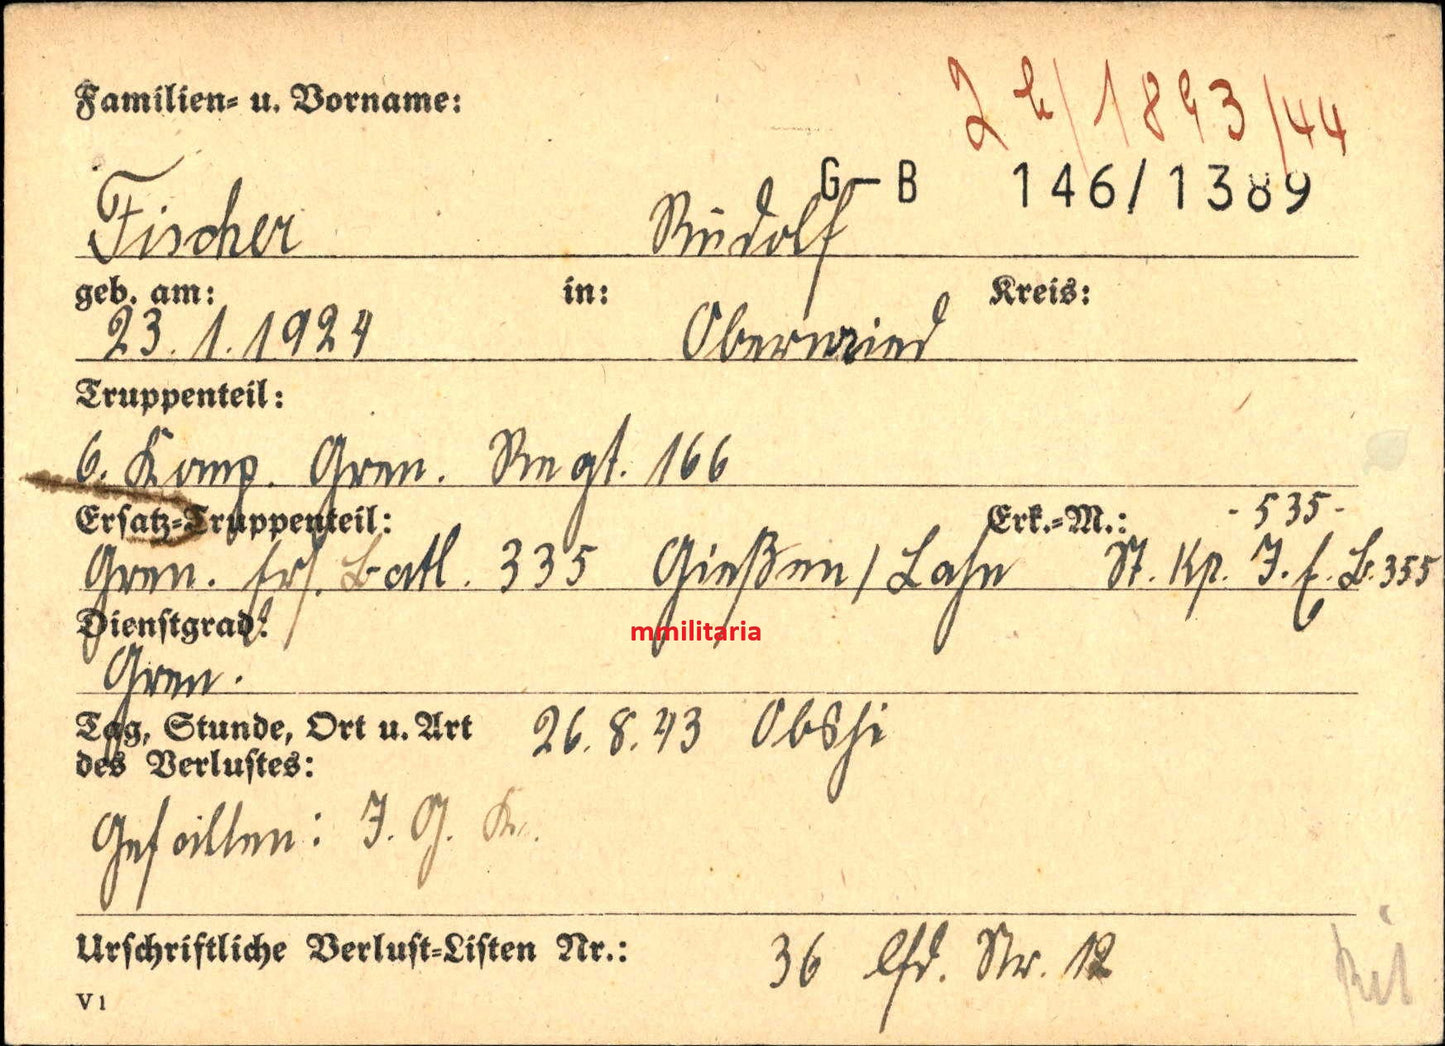 2 b/1893/44
Familien- u. Vorname:
G-B 146/1389
Fischer Rudolf
geb. am: in: Kreis:
23.1.1924
Truppenteil:
6. Komp. Gren. Regt. 166
Ersatz-Truppenteil: Erk.-M.: -535-
Gren. Ers. Batl. 335 Gießen/Lahn St. Kp. I. E. B. 355
Dienstgrad:
mmilitaria
Gren.
Tag, Stunde, Ort u. Art 26.8.43
des Verlustes:
Gefallen: I. G. K.
Urschriftliche Verlust-Listen Nr.: 36 lfd. Nr. 12
V 1